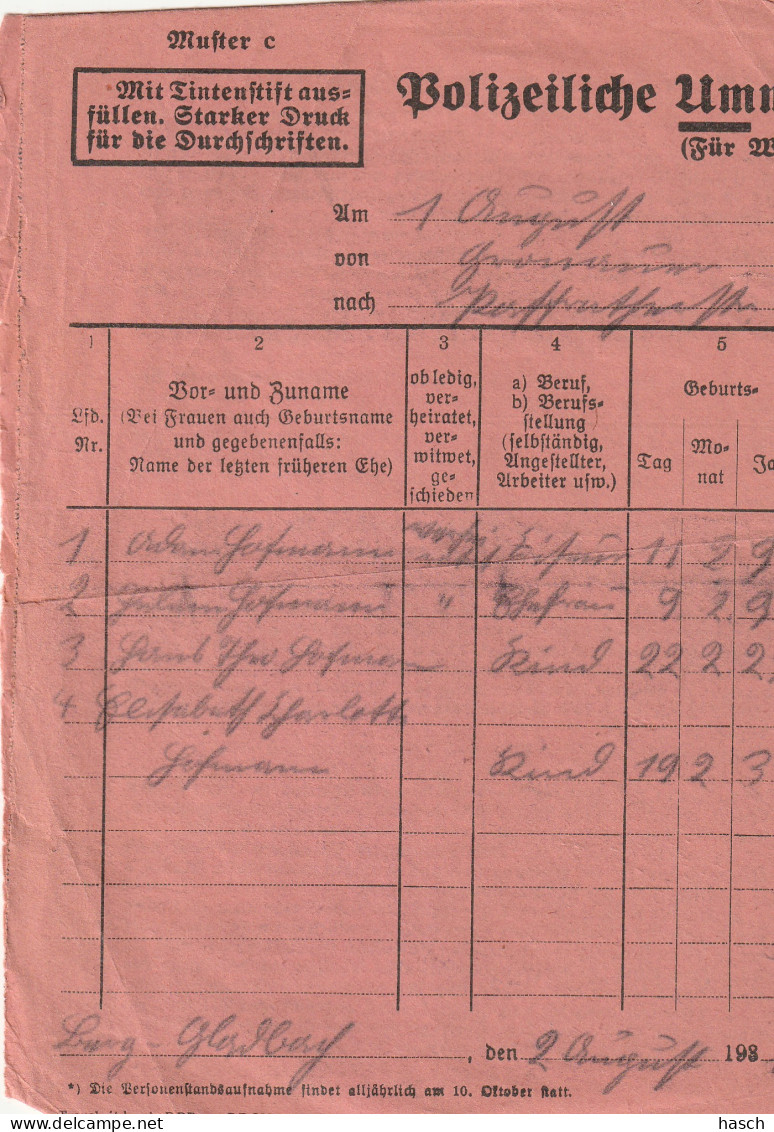 Muster c
Mit Tintenstift aus-
füllen. Starker Druck
für die Durchschriften.
Polizeiliche Umm
(Für W
Am 1 August
von Gronauer
nach
1 2 3 4 5
Lfd.
Nr.
Vor- und Zuname
(Bei Frauen auch Geburtsname
und gegebenenfalls:
Name der letzten früheren Ehe)
ob ledig,
ver-
heiratet,
ver-
witwet,
ge-
schieden
a) Beruf,
b) Berufs-
stellung
(selbständig,
Angestellter,
Arbeiter usw.)
Geburts-
Tag
Mo-
nat
Ja
1 Adam Hofmann 11 2 9
2 Hofmann " Ehefrau 9 2 9
3 Hans Theo Hofmann Kind 22 2 2
4 Elisabeth Charlotte
Hofmann Kind 19 2 3
Berg-Gladbach, den 2 August 193
*) Die Personenstandsaufnahme findet alljährlich am 10. Oktober statt.
hasch